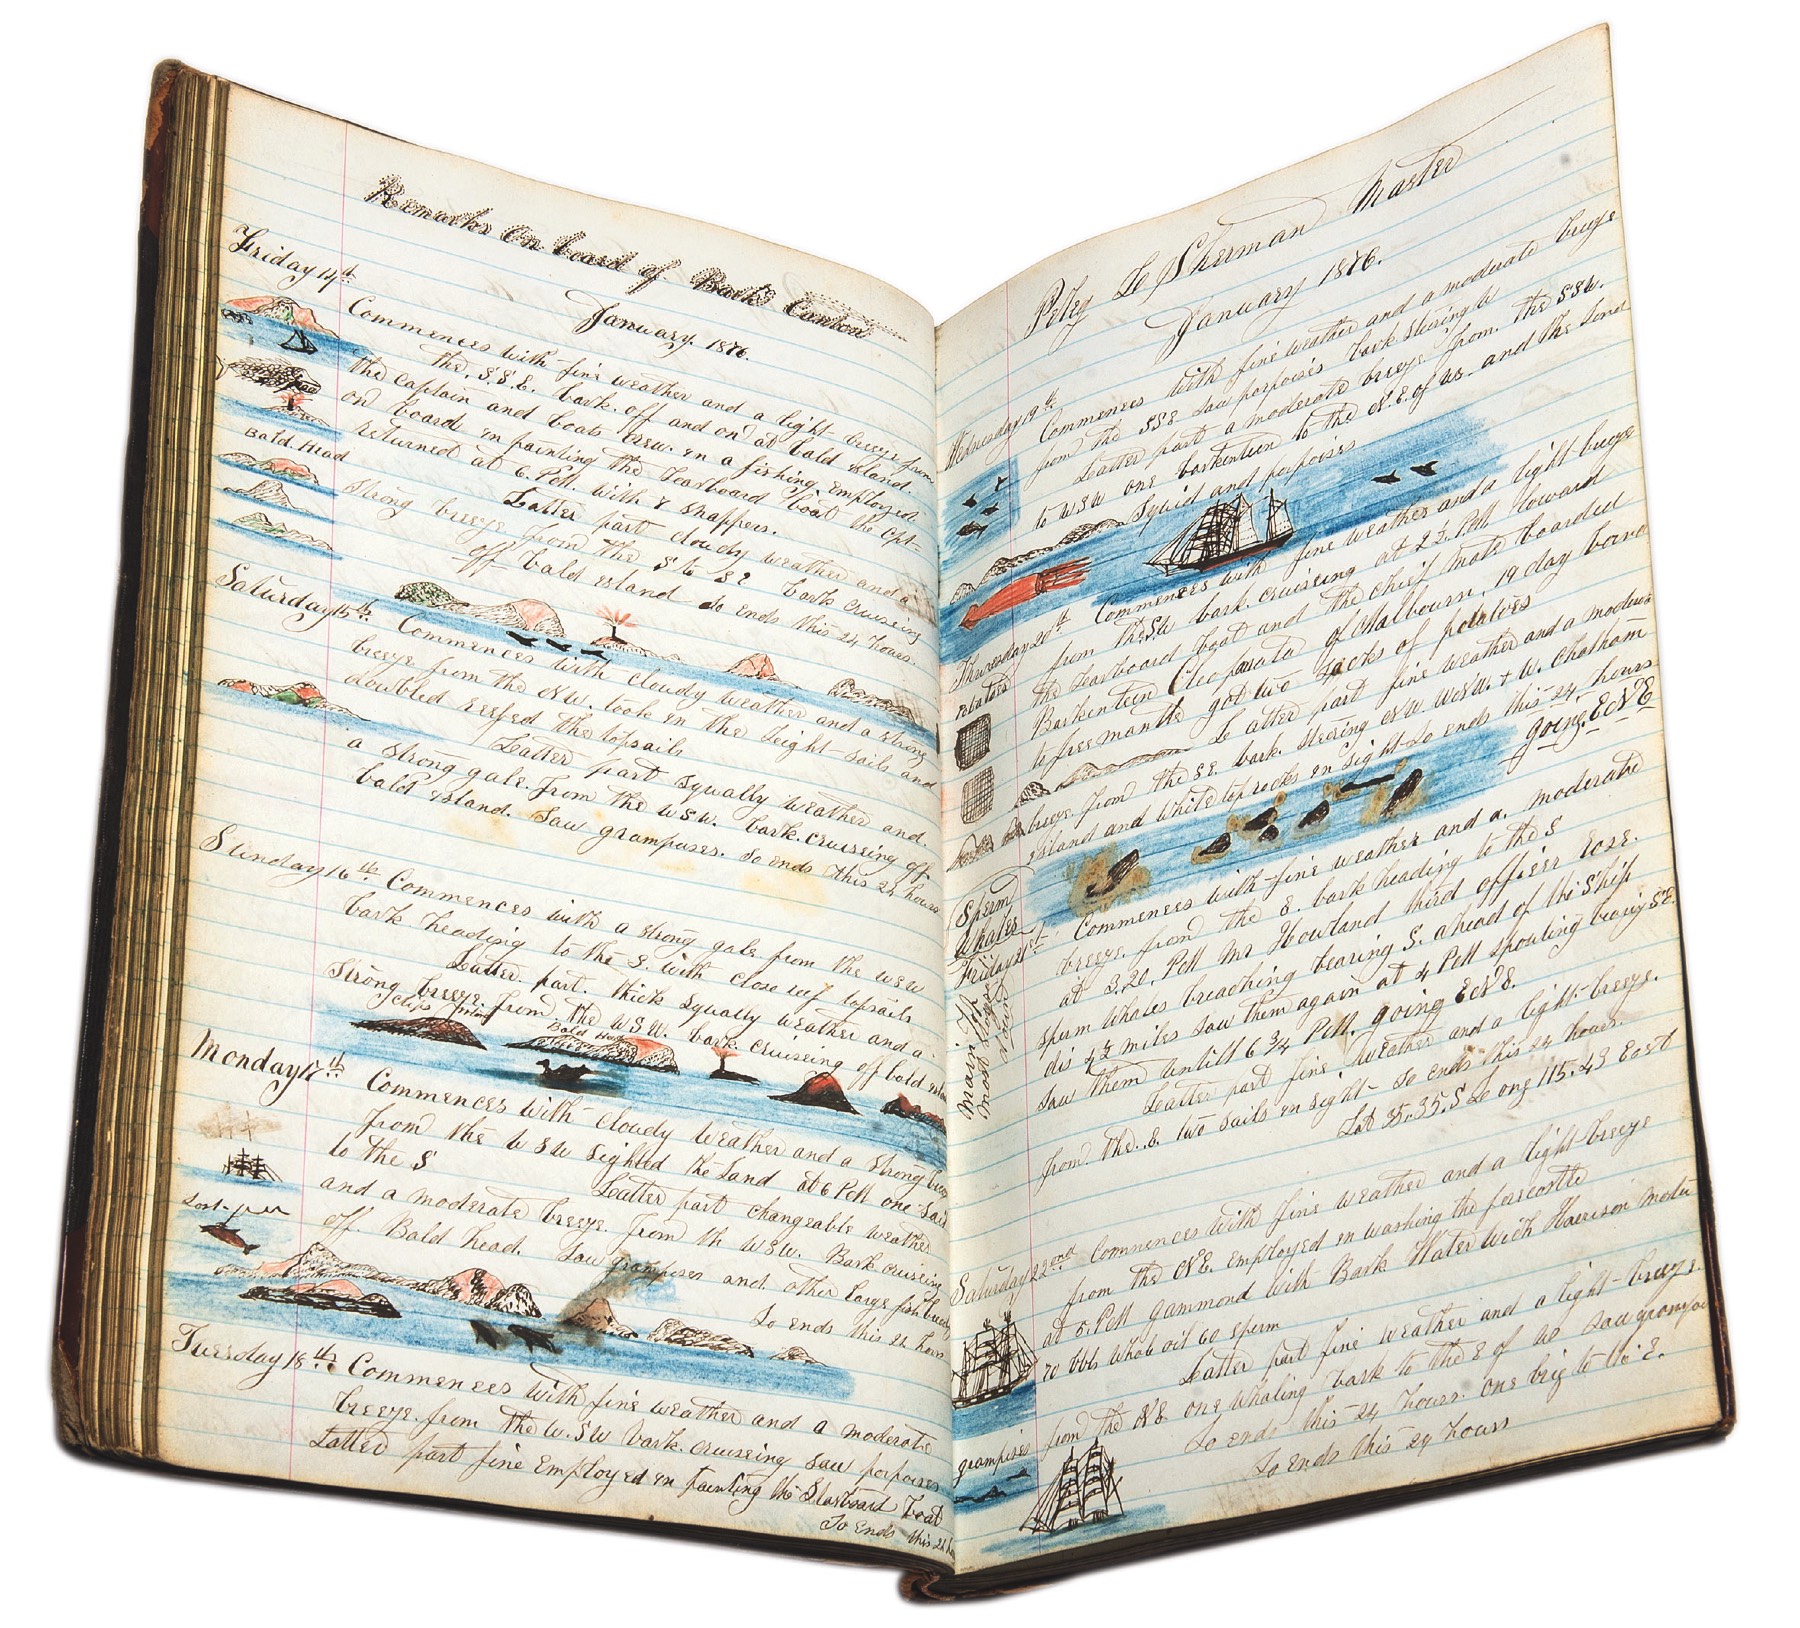 Remarks on board of Bark Canton
January. 1876.
Friday 14th
Commences with fine weather and a light breeze from
the. S.S.E. bark. off and on at bald island.
the Captain and boats crew. in a fishing employed
on board in painting the Learboard boat the Cpt-
returned at 6. PM. with 8 snappers.
Bald Head
Latter part cloudy weather and a
strong breeze from the S to SE bark cruiseing
off bald island So ends this 24 hours.
Saturday 15th
Commences with cloudy weather and a strong
breeze from the NW. took in the leight-sails and
doubled reefed the topsails
Latter part squally weather and.
a strong gale. from the WSW. bark. cruiseing off
bald island. Saw grampuses. So ends this 24 hours
Sunday 16th Commences with a strong gale from the WSW
bark heading to the S. with close reef topsails
Latter part. thick squally weather and a
strong breeze from the WSW. bark cruiseing off bald
Bald Head
Monday 17th
Commences with cloudy weather and a strong
from the WSW sighted the Land at 6 PM one sail
to the S
Latter part changeable weather
and a moderate breeze. from th WSW. Bark cruiseing
off Bald head. Saw grampuses and other large fish
So ends this 24 hours
Tuesday 18th Commences with fine weather and a moderate
breeze. from the W.SW bark. cruiseing saw porpoises
Latter part fine employed in painting the Starboard boat
So ends this 24
Peleg Le Sherman Master
January 1876.
Wednesday 19th
Commences with fine weather and a moderate breeze
from the SSE saw porpoises bark steering
Latter part a moderate breeze from. the SSW.
to WSW one barkenteen to the N.E. of us. and the land
Squid and porpoises
Thursday 20th
Commences with fine weather and a light breeze
from the.SW bark. cruiseing at 2½. PM. lowered
the Learboard boat and the chief mate boarded
Barkenteen Cleopatra of Malbourn, 19 day bound
to freemantle got two sacks of potatoes
potatoes
Latter part fine weather and a moderate
breeze from the SE. bark. steering NW WNW. + W. Chatham
island and White top rocks in sight- So ends this 24 hours
going. ENE
Sperm
Whales
Friday 21st
Commences with fine weather and a. moderate
breeze. from the E. bark heading to the S
at 3.20. PM Mr Howland third officer
sperm whales breaching bearing S. ahead of the Ship
dis 4½ miles saw them again at 4 PM spouting bearing SE.
saw them untill 6 ¾ PM. going ENE.
Latter part fine. weather and a light-breeze.
from the. E. two sails in sight- So ends this 24 hours.
Lat 35..35.S Long 115.43 East
Saturday 22nd
Commences with fine weather and a light breeze
from the NE. employed in washing the forecastle
at 5. PM gammond with Bark Waterwich Harrison
70 bbls whale oil 60 sperm
Latter part fine weather and a light-breeze.
from the NE one whaling bark to the E of us Saw
grampuses
So ends this 24 hours. one brig to the E.
So ends this 24 hours